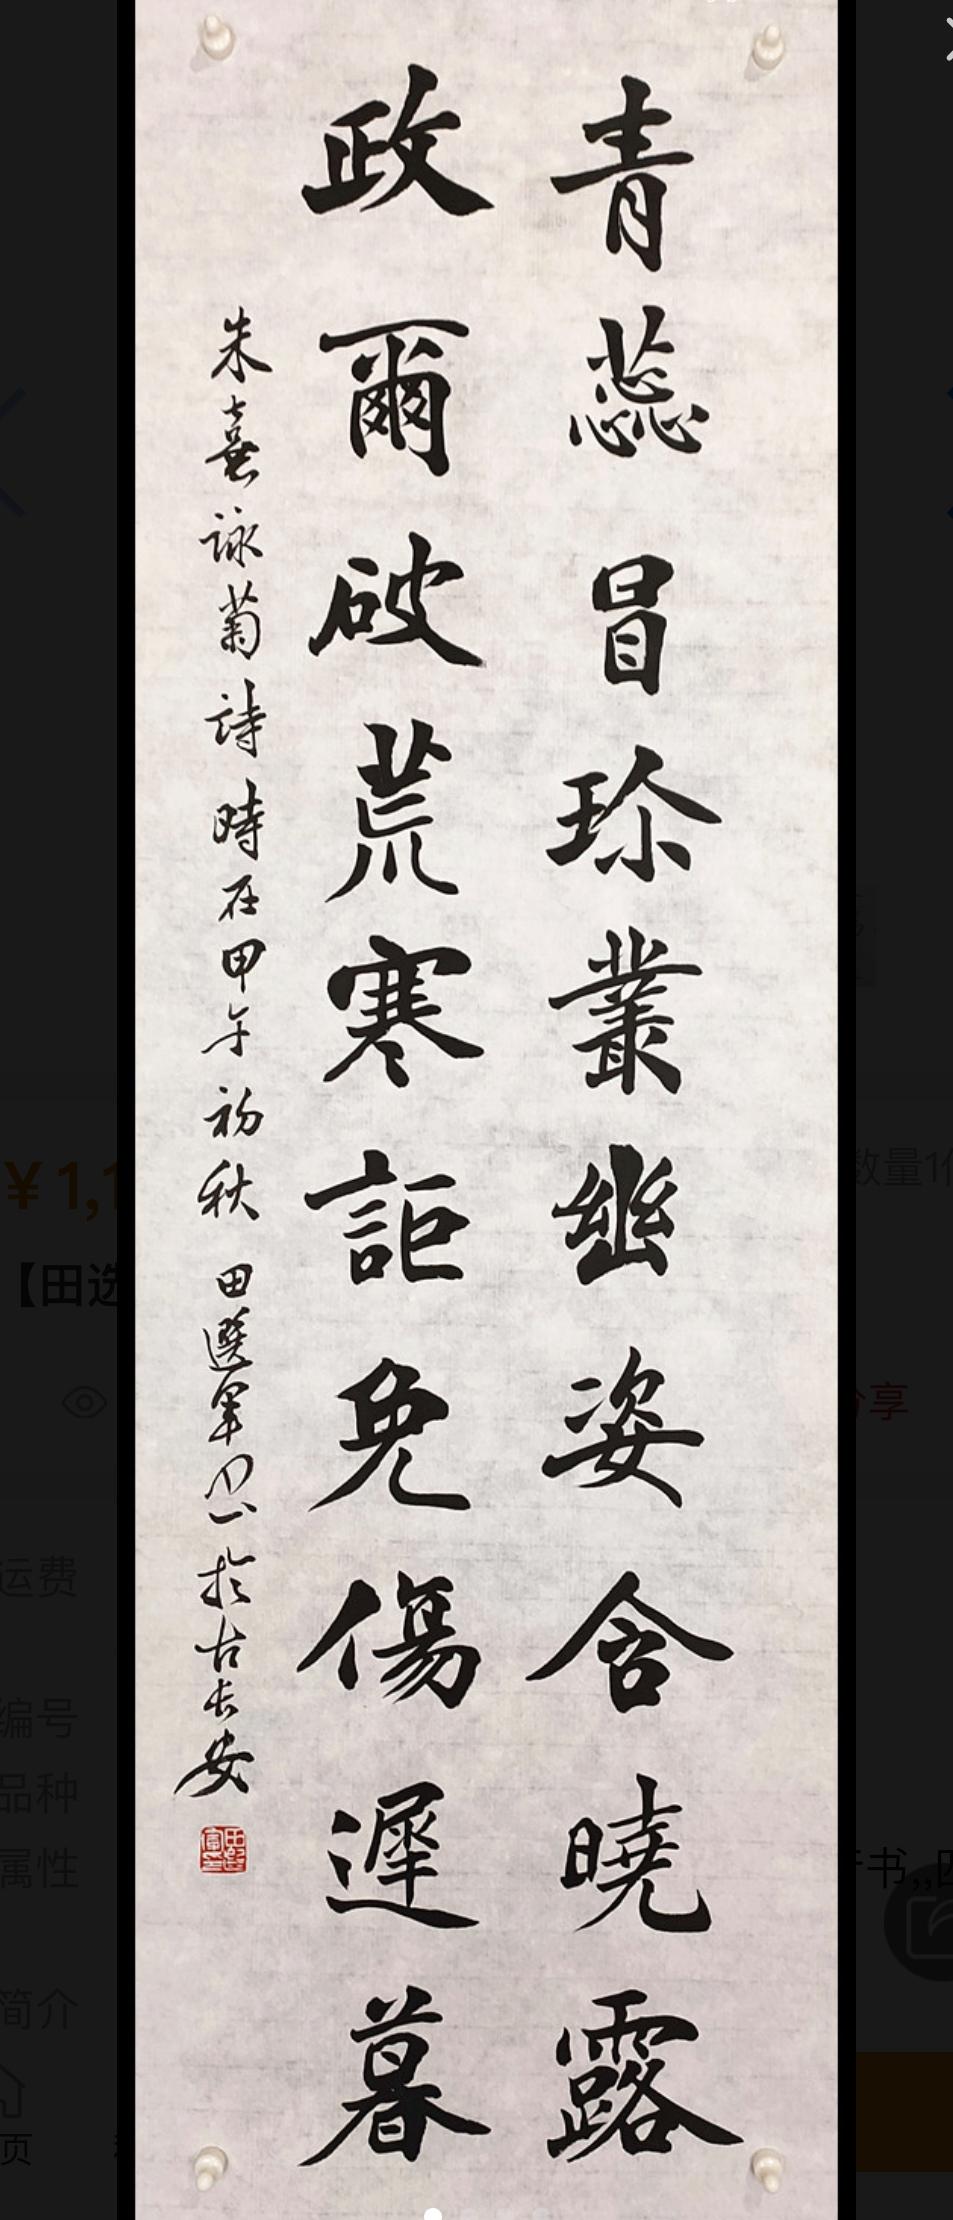 青蕊冒珍叢幽姿含曉露
政爾破荒寒詎免傷遲暮
朱熹詠菊詩時在甲午初秋田選軍書於古長安
¥1,1
【田选
数量1
享
运费
编号
品种
属性
书,,
简介
页